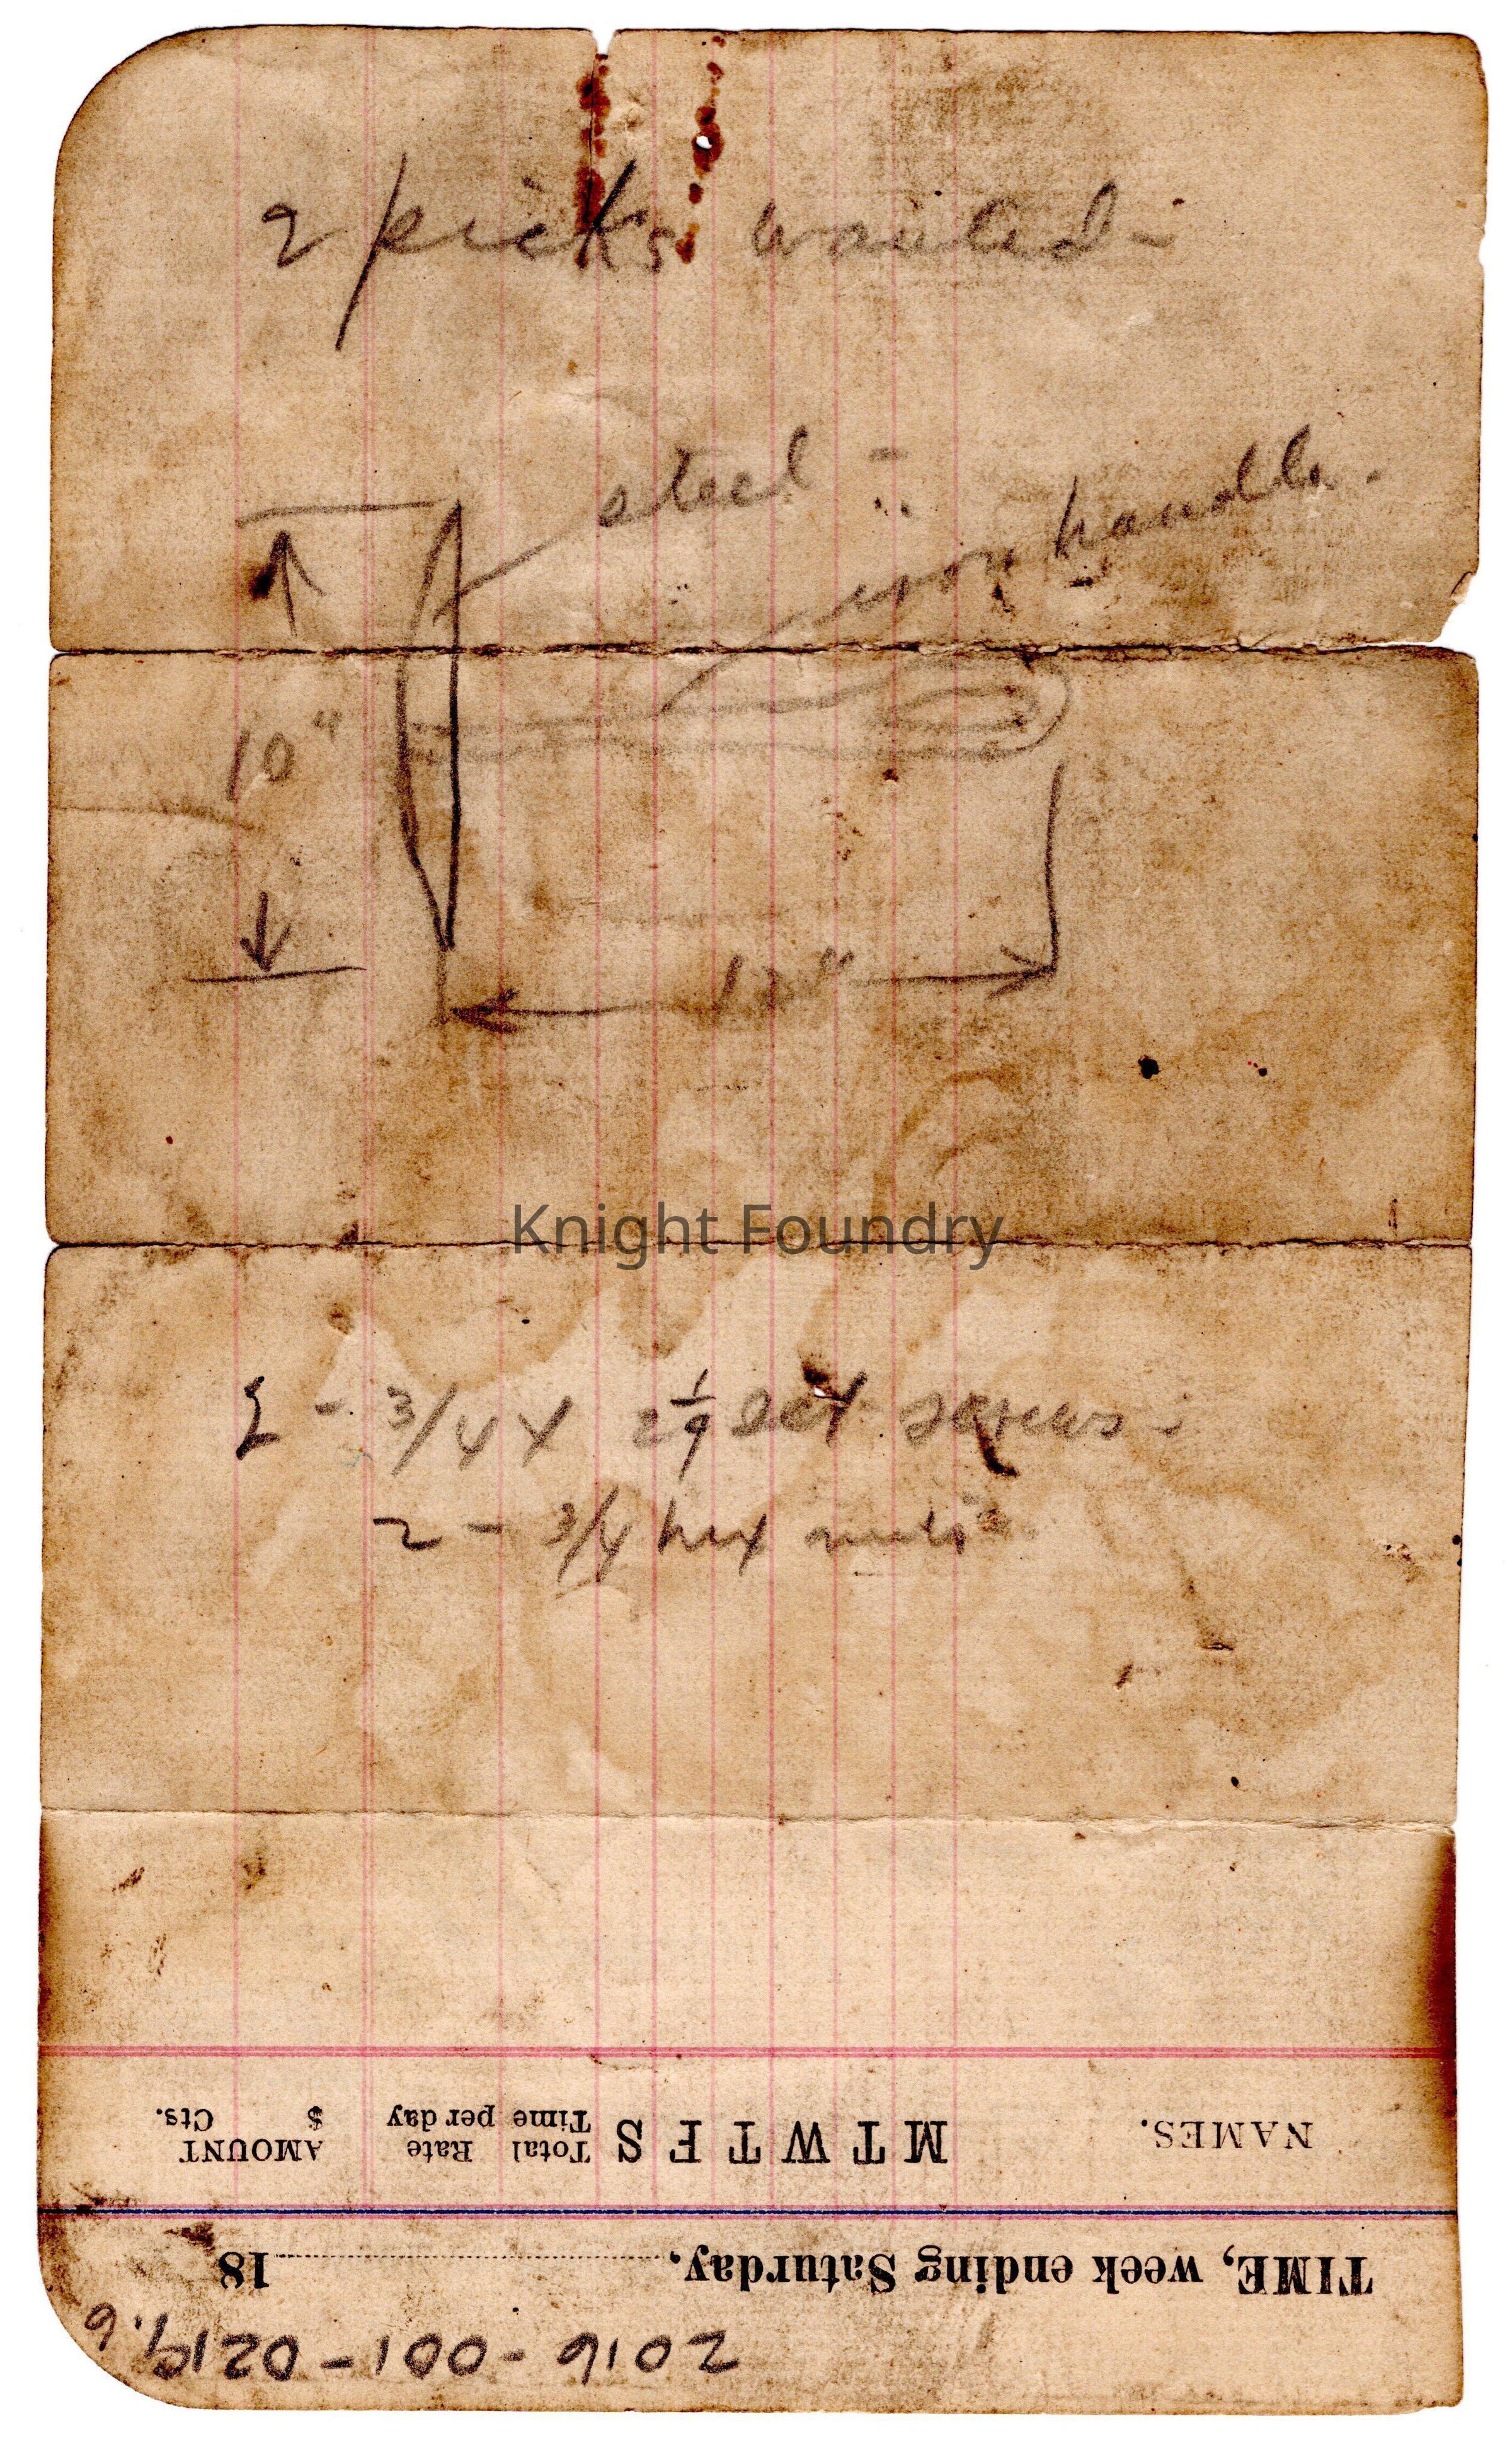 2 picks wanted -
steel -
iron handle.
10"
12"
Knight Foundry
2 - 3/4 X 2 1/9 set screws -
2 - 3/4 hex nuts
NAMES. M T W T F S Total Time Rate per day AMOUNT $ Cts.
TIME, week ending Saturday, 18
2016-001-0219.6